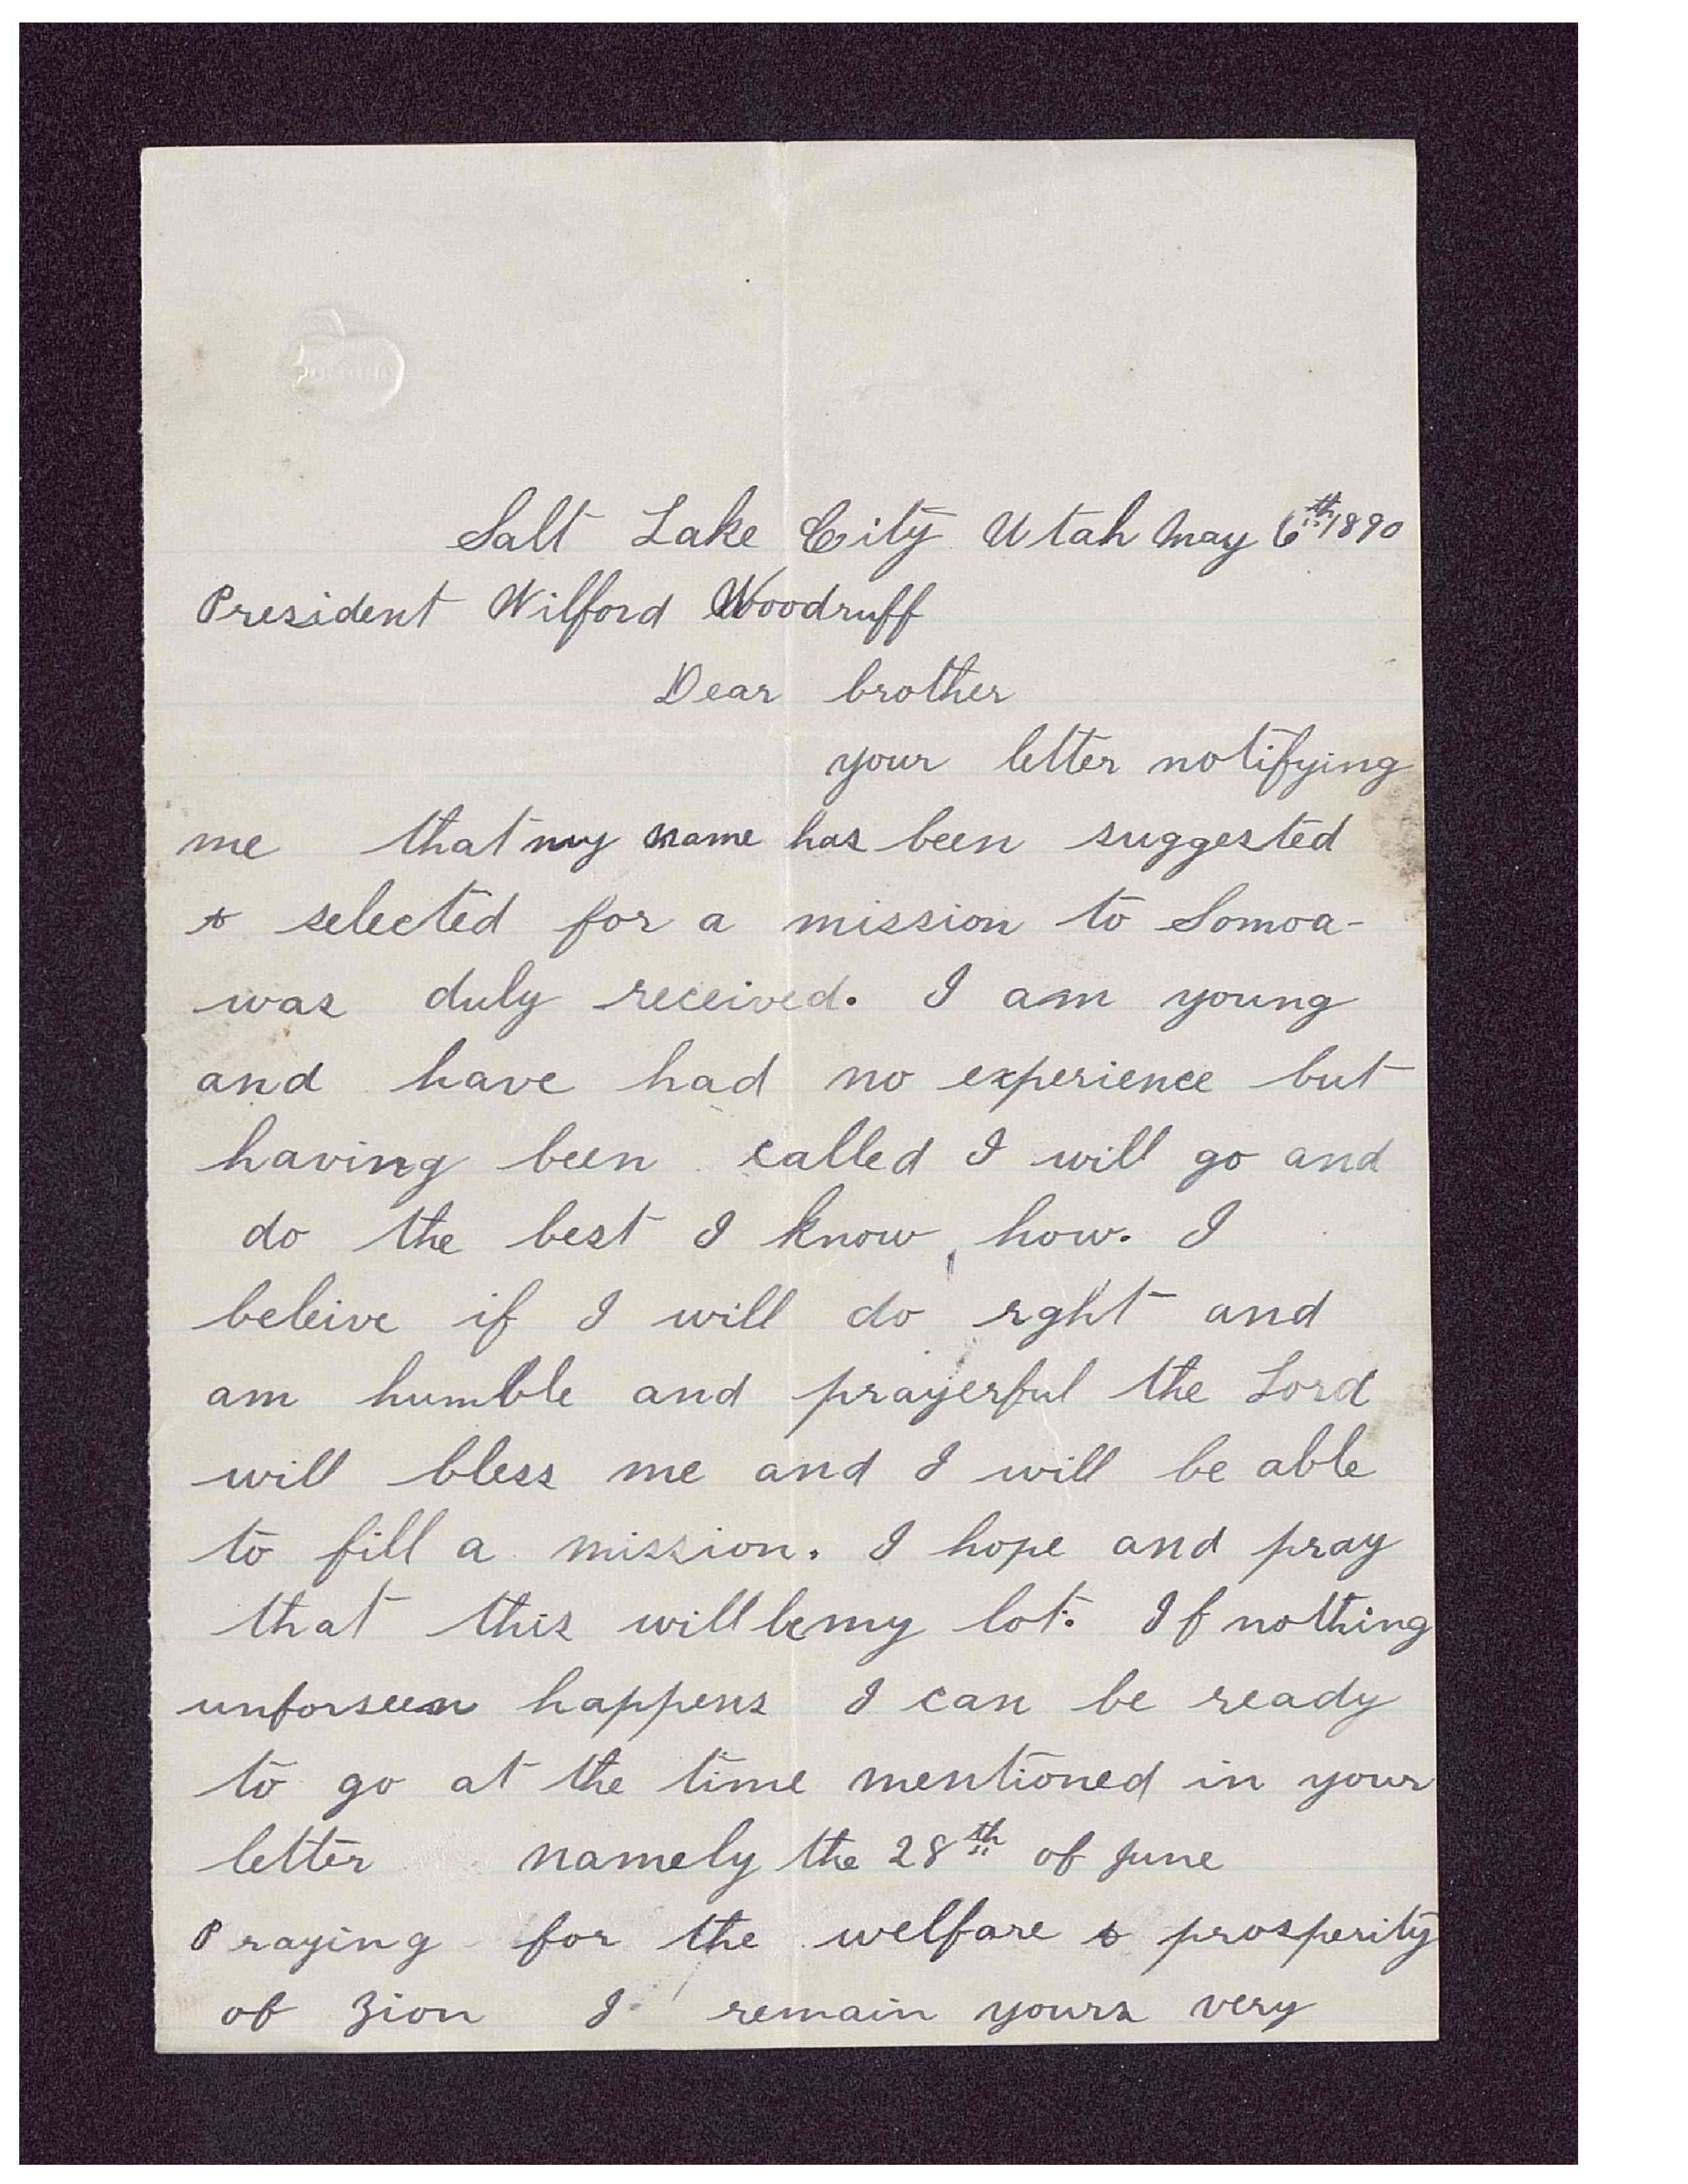 Salt Lake City Utah May 6th 1890
President Wilford Woodruff
Dear brother
your letter notifying
me that my name has been suggested
& selected for a mission to Somoa-
was duly received. I am young
and have had no experience but
having been called I will go and
do the best I know, how. I
beleive if I will do rght and
am humble and prayerful the Lord
will bless me and I will be able
to fill a mission. I hope and pray
that this will be my lot. If nothing
unforseen happens I can be ready
to go at the time mentioned in your
letter namely the 28th of June
Praying for the welfare & prosperity
of Zion I remain yours very